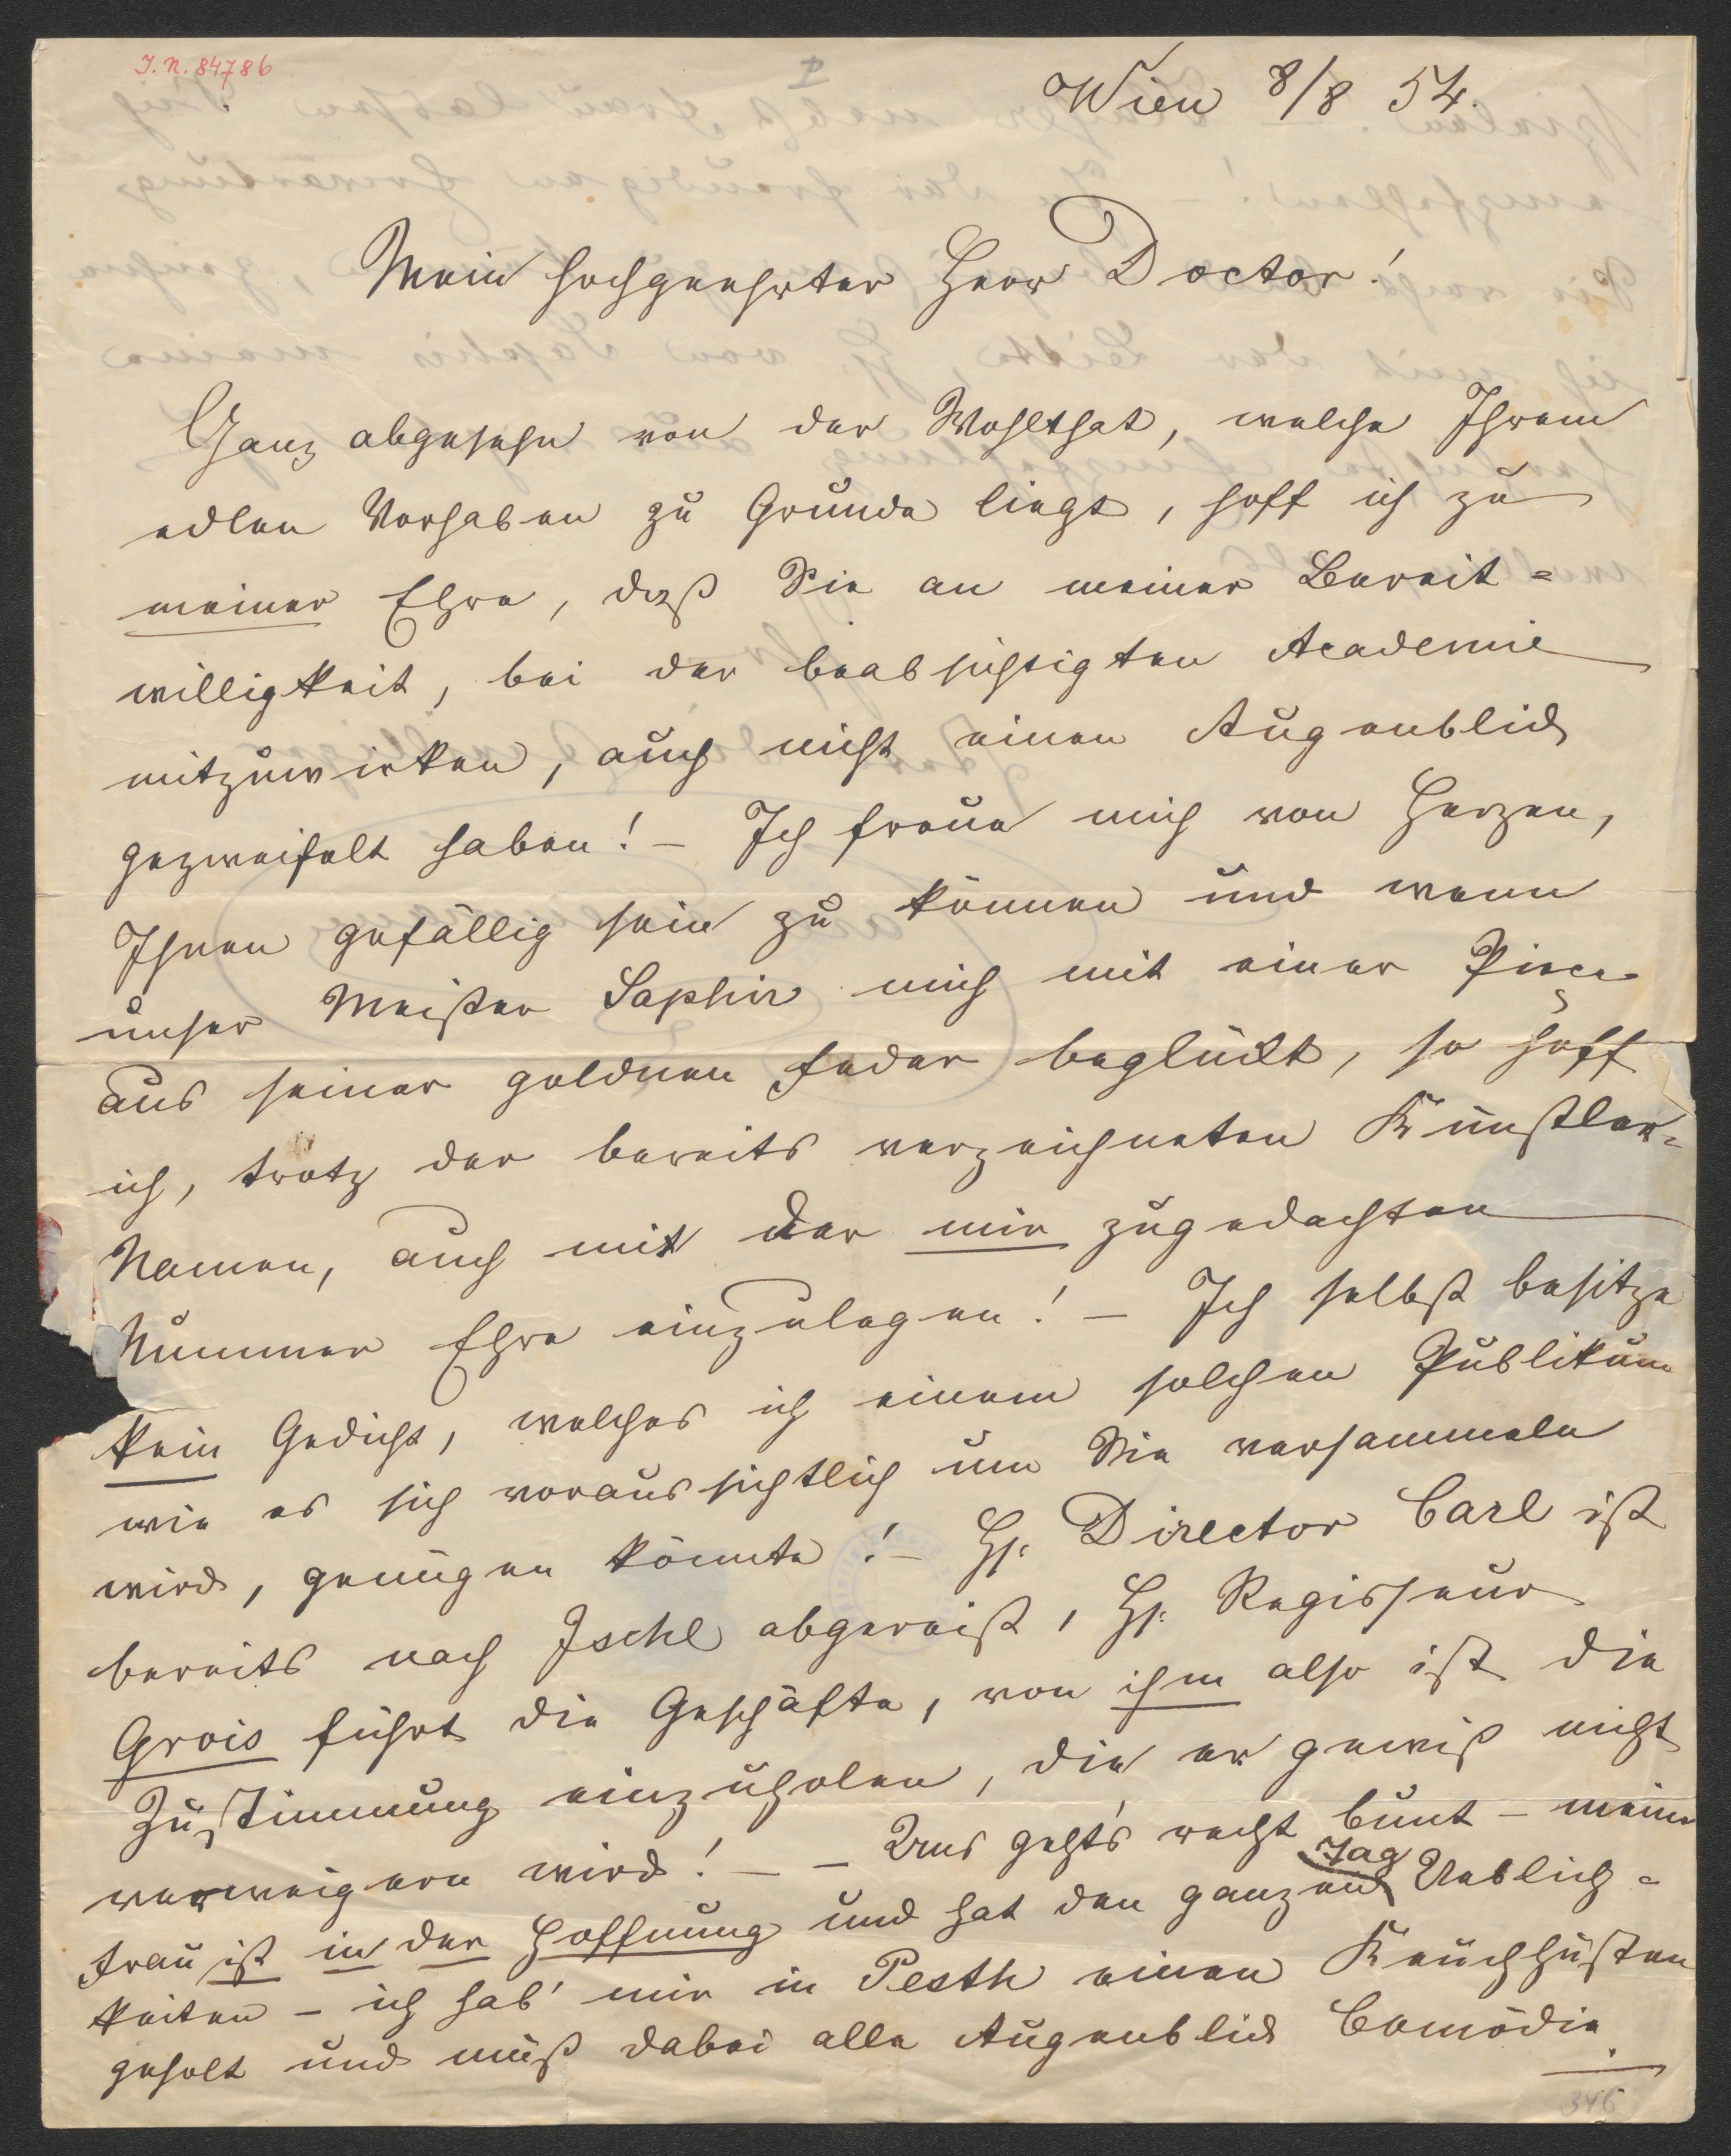 J. N. 84786
I
Wien 8/8 54.
Mein hochgeehrter Herr Doctor!
Ganz abgesehn von der Wohlthat, welche Ihrem
edlen Vorhaben zu Grunde liegt, hoff ich zu
meiner Ehre, daß Sie an meiner Bereit=
willigkeit, bei der beabsichtigten Academie
mitzuwirken, auch nicht einen Augenblick
gezweifelt haben! – Ich freue mich von Herzen,
Ihnen gefällig sein zu können und wenn
unser Meister Saphir mich mit einer Pieçe
aus seiner goldnen Feder beglückt, so hoff
ich, trotz der bereits verzeichneten Künstler=
Namen, auch mit der mir zugedachten
Nummer Ehre einzulegen! – Ich selbst besitze
kein Gedicht, welches ich einem solchen Publikum
wie es sich voraussichtlich um Sie versammeln
wird, genügen könnte! – Hr. Director Carl ist
bereits nach Ischl abgereist, Hr. Regisseur
Grois führt die Geschäfte, von ihm also ist die
Zustimmung einzuholen, die er gewiß nicht
verweigern wird! – – Uns geht's recht bunt – meine
Frau ist in der Hoffnung und hat den ganzen Tag Ueblich=
keiten – ich hab' mir in Pesth einen Keuchhusten
geholt und muß dabei alle Augenblick Comödie
346